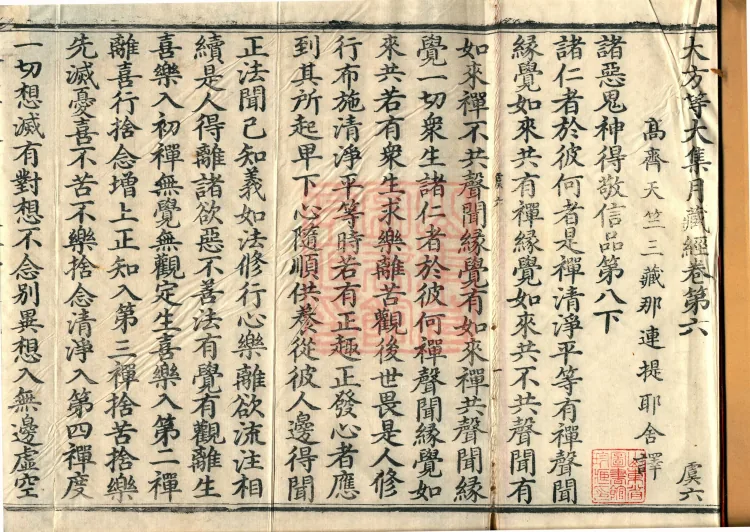 大方等大集月藏經卷第六　虞六
高齊天竺三藏那連提耶舍譯
諸惡鬼神得敬信品第八下
諸仁者於彼何者是禪清淨平等有禪聲聞
緣覺如來共有禪緣覺如來共不共聲聞有
如來禪不共聲聞緣覺有如來禪共聲聞緣
覺一切眾生諸仁者於彼何禪聲聞緣覺如
來共若有眾生求樂離苦觀後世畏是人修
行布施清淨平等時若有正趣正發心者應
到其所起卑下心隨順供養從彼人邊得聞
正法聞已知義如法修行心樂離欲流注相
續是人得離諸欲惡不善法有覺有觀離生
喜樂入初禪無覺無觀定生喜樂入第二禪
離喜行捨念增上正知入第三禪捨苦捨樂
先滅憂喜不苦不樂捨念清淨入第四禪度
一切想滅有對想不念別異想入無邊虛空